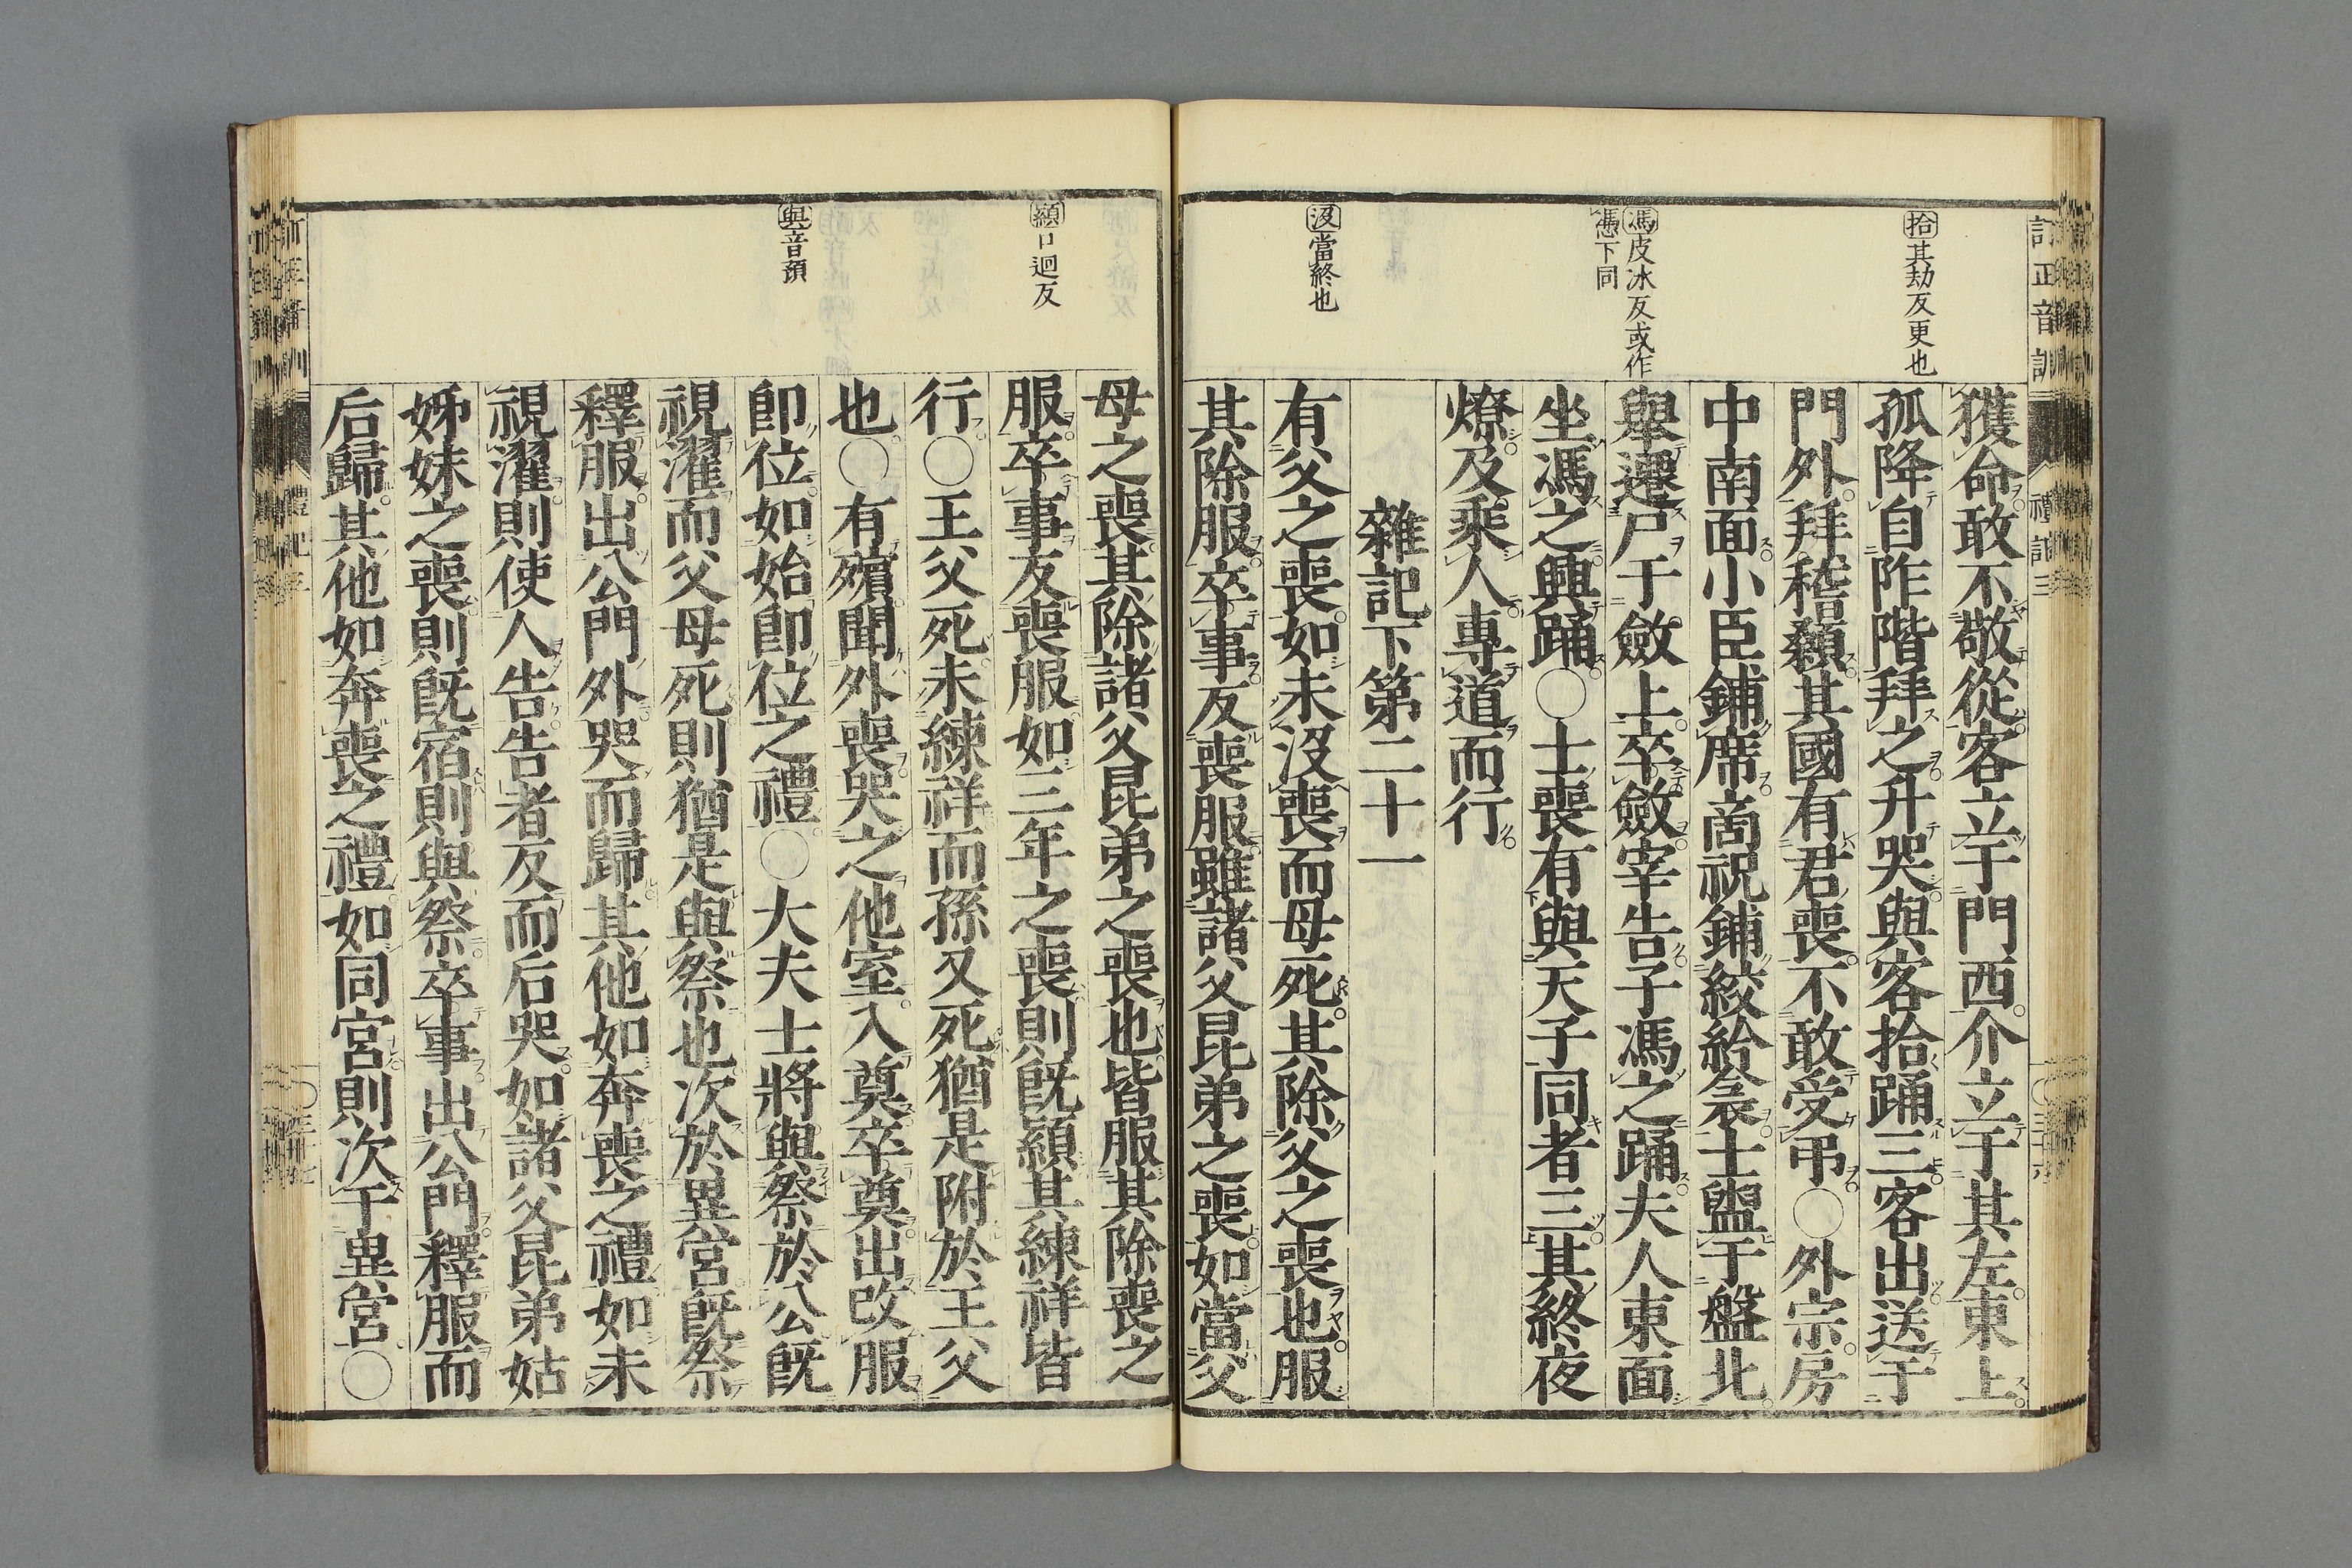 訂正音訓
禮記三
拾其劫反更也
馮皮冰反或作
憑下同
沒當終也
獲命敢不敬從客立于門西介立于其左東上
孤降自阼階拜之升哭與客拾踊三客出送于
門外拜稽顙其國有君喪不敢受弔○外宗房
中南面小臣鋪席商祝鋪絞紟衾士盥于盤北
舉遷尸于斂上卒斂宰告子馮之踊夫人東面
坐馮之興踊○士喪有與天子同者三其終夜
燎及乘人專道而行
雜記下第二十一
有父之喪如未沒喪而母死其除父之喪也服
其除服卒事反喪服雖諸父昆弟之喪如當父
顈口迥反
與音預
母之喪其除諸父昆弟之喪也皆服其除喪之
服卒事反喪服如三年之喪則旣顈其練祥皆
行○王父死未練祥而孫又死猶是附於王父
也○有殯聞外喪哭之他室入奠卒奠出改服
卽位如始卽位之禮○大夫士將與祭於公旣
視濯而父母死則猶是與祭也次於異宮旣祭
釋服出公門外哭而歸其他如奔喪之禮如未
視濯則使人告告者反而后哭如諸父昆弟姑
姊妹之喪則旣宿則與祭卒事出公門釋服而
后歸其他如奔喪之禮如同宮則次于異宮○